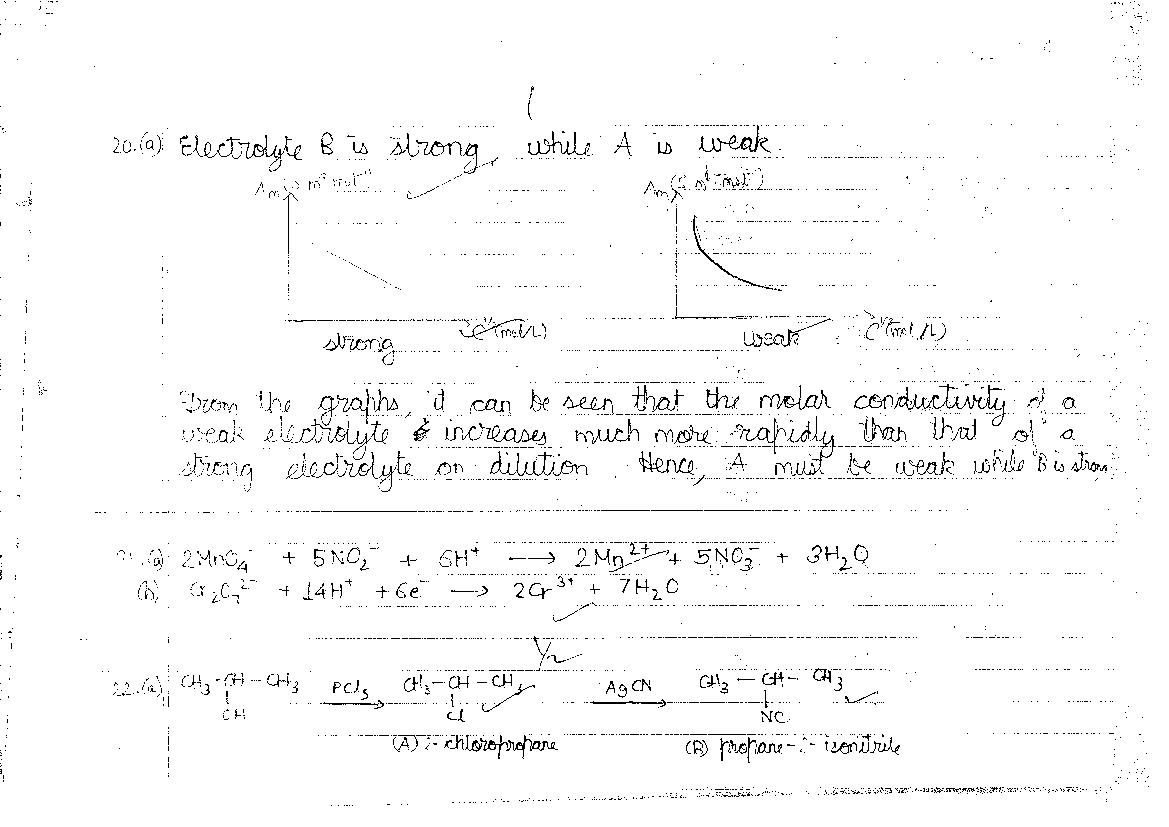 20.(a) Electrolyte B is strong, while A is weak.
Λm m² mol⁻¹ Λm (S m² mol⁻¹)
C½ (mol/L) C½ (mol/L)
strong weak
From the graphs, it can be seen that the molar conductivity of a
weak electrolyte increases much more rapidly than that of a
strong electrolyte on dilution. Hence, A must be weak while B is strong
21.(a) 2MnO₄⁻ + 5NO₂⁻ + 6H⁺ ⟶ 2Mn²⁺ + 5NO₃⁻ + 3H₂O
(b) Cr₂O₇²⁻ + 14H⁺ + 6e⁻ ⟶ 2Cr³⁺ + 7H₂O
½
22.(a) CH₃-CH-CH₃ PCl₅ CH₃-CH-CH₃ AgCN CH₃-CH-CH₃
OH Cl NC
(A) 2-chloropropane (B) propane-2-isonitrile